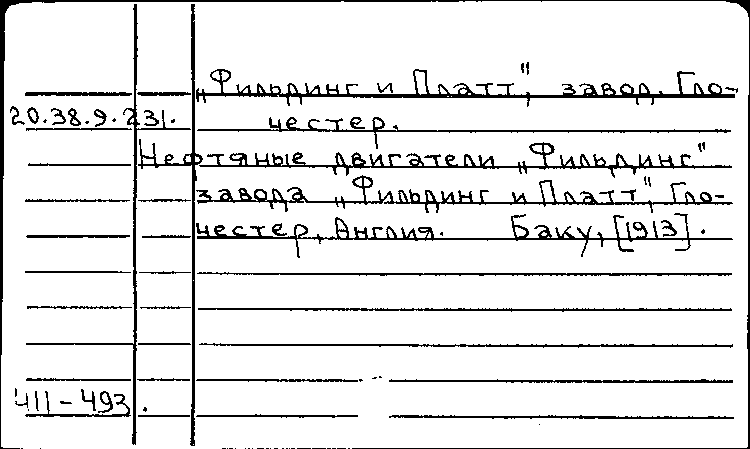 „Фильдинг и Платт", завод. Гло-
20.38.9.231. честер.
Нефтяные двигатели „Фильдинг"
завода „Фильдинг и Платт", Гло-
честер, Англия. Баку, [1913].
411-493.